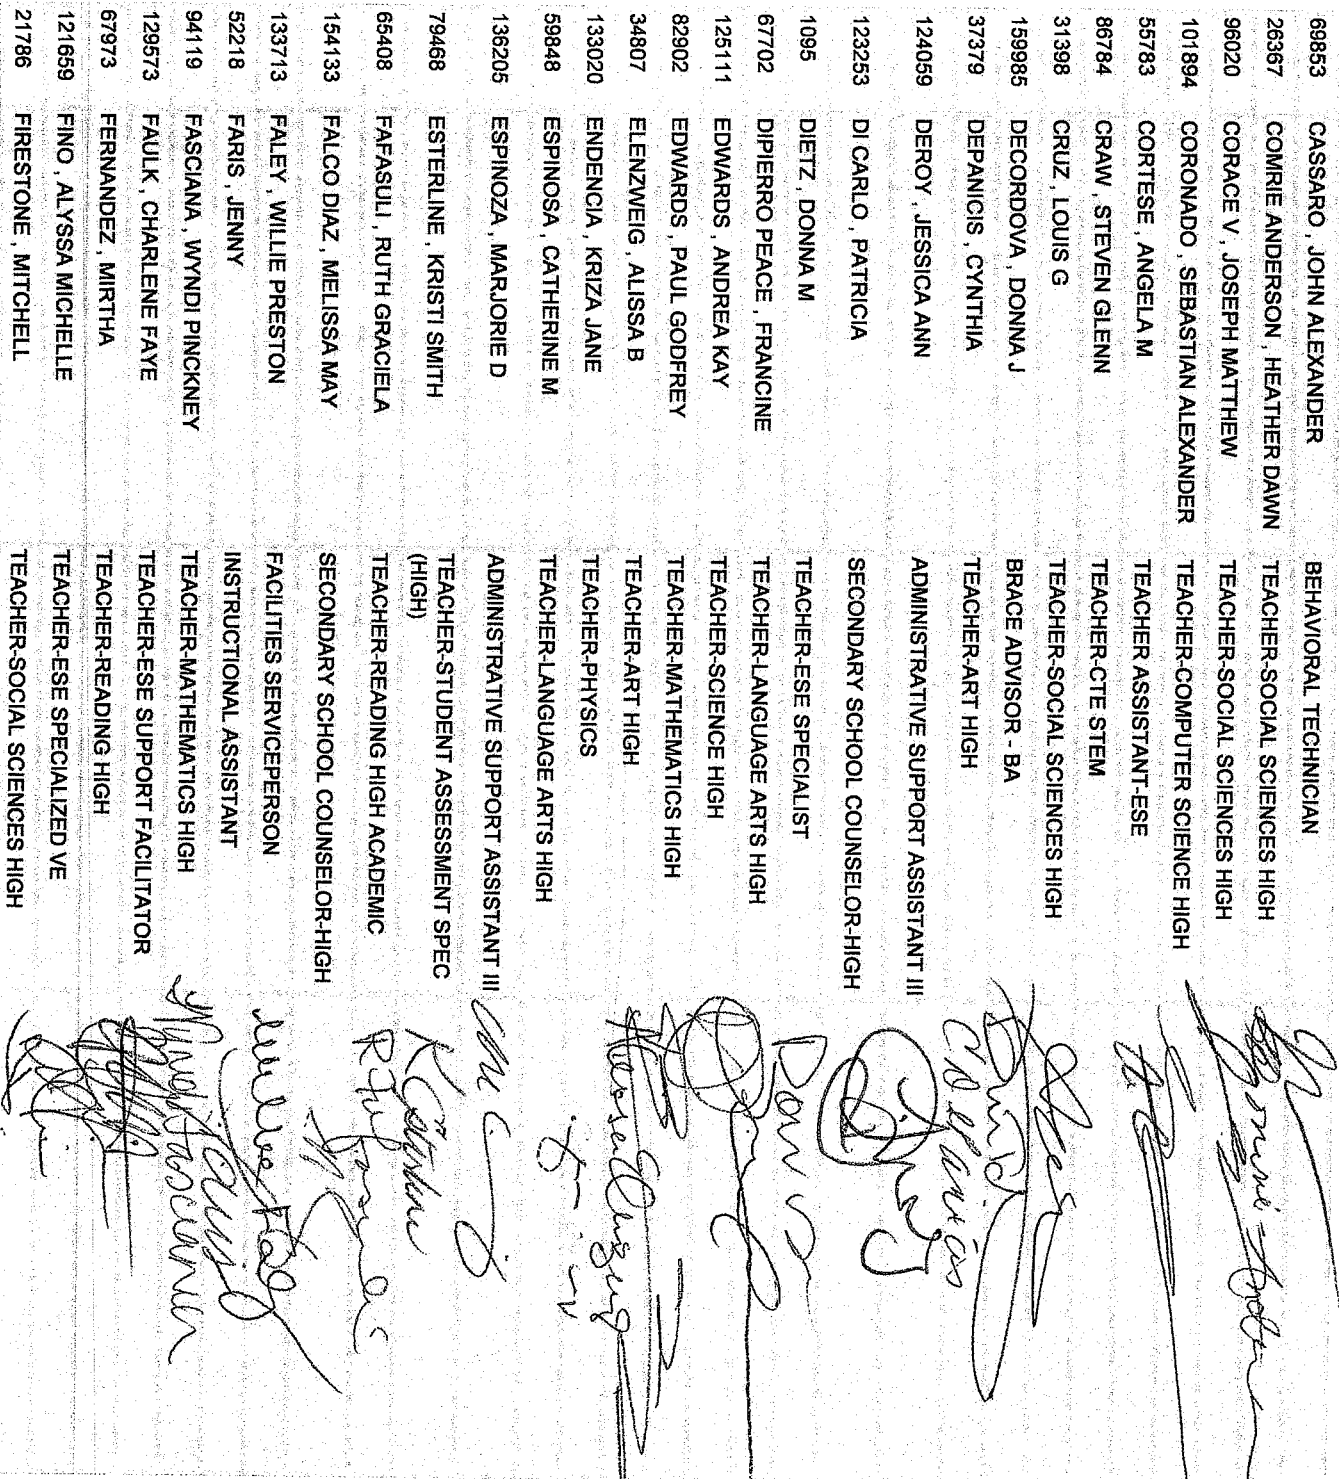 69853 CASSARO , JOHN ALEXANDER BEHAVIORAL TECHNICIAN
26367 COMRIE ANDERSON , HEATHER DAWN TEACHER-SOCIAL SCIENCES HIGH
96020 CORACE V , JOSEPH MATTHEW TEACHER-SOCIAL SCIENCES HIGH
101894 CORONADO , SEBASTIAN ALEXANDER TEACHER-COMPUTER SCIENCE HIGH
55783 CORTESE , ANGELA M TEACHER ASSISTANT-ESE
86784 CRAW , STEVEN GLENN TEACHER-CTE STEM
31398 CRUZ , LOUIS G TEACHER-SOCIAL SCIENCES HIGH
159985 DECORDOVA , DONNA J BRACE ADVISOR - BA
37379 DEPANICIS , CYNTHIA TEACHER-ART HIGH
124059 DEROY , JESSICA ANN ADMINISTRATIVE SUPPORT ASSISTANT III
123253 DI CARLO , PATRICIA SECONDARY SCHOOL COUNSELOR-HIGH
1095 DIETZ , DONNA M TEACHER-ESE SPECIALIST
67702 DIPIERRO PEACE , FRANCINE TEACHER-LANGUAGE ARTS HIGH
125111 EDWARDS , ANDREA KAY TEACHER-SCIENCE HIGH
82902 EDWARDS , PAUL GODFREY TEACHER-MATHEMATICS HIGH
34807 ELENZWEIG , ALISSA B TEACHER-ART HIGH
133020 ENDENCIA , KRIZA JANE TEACHER-PHYSICS
59848 ESPINOSA , CATHERINE M TEACHER-LANGUAGE ARTS HIGH
136205 ESPINOZA , MARJORIE D ADMINISTRATIVE SUPPORT ASSISTANT III
79468 ESTERLINE , KRISTI SMITH TEACHER-STUDENT ASSESSMENT SPEC
(HIGH)
65408 FAFASULI , RUTH GRACIELA TEACHER-READING HIGH ACADEMIC
154133 FALCO DIAZ , MELISSA MAY SECONDARY SCHOOL COUNSELOR-HIGH
133713 FALEY , WILLIE PRESTON FACILITIES SERVICEPERSON
52218 FARIS , JENNY INSTRUCTIONAL ASSISTANT
94119 FASCIANA , WYNDI PINCKNEY TEACHER-MATHEMATICS HIGH
129573 FAULK , CHARLENE FAYE TEACHER-ESE SUPPORT FACILITATOR
67973 FERNANDEZ , MIRTHA TEACHER-READING HIGH
121659 FINO , ALYSSA MICHELLE TEACHER-ESE SPECIALIZED VE
21786 FIRESTONE , MITCHELL TEACHER-SOCIAL SCIENCES HIGH